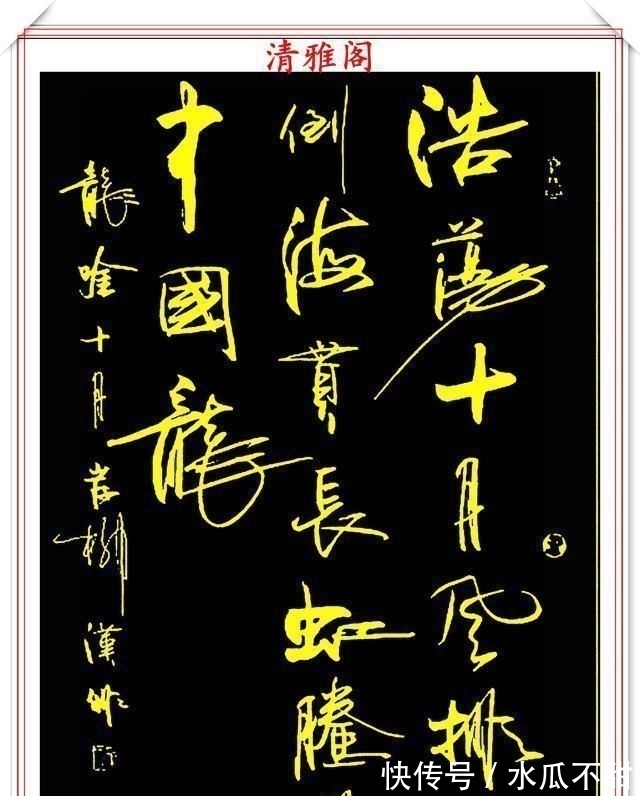 清雅阁
浩蕩十月風排
倒海貫長虹騰
中國龍
龍吟十月
漢
快传号/水瓜不甜